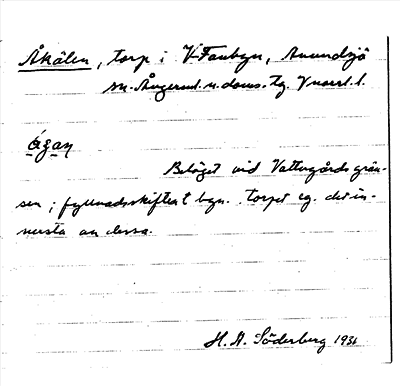 Åkälen, torp i V-Fanbyn, Anundsjö
sn. Ångerml. n. doms. tg. Vnorrl. l.
ágan
Beläget vid Vattugårds grän-
sen i fyllnadsskiftet bgn. Torpet eg. det in-
nersta av dessa.
H. A. Söderberg 1931